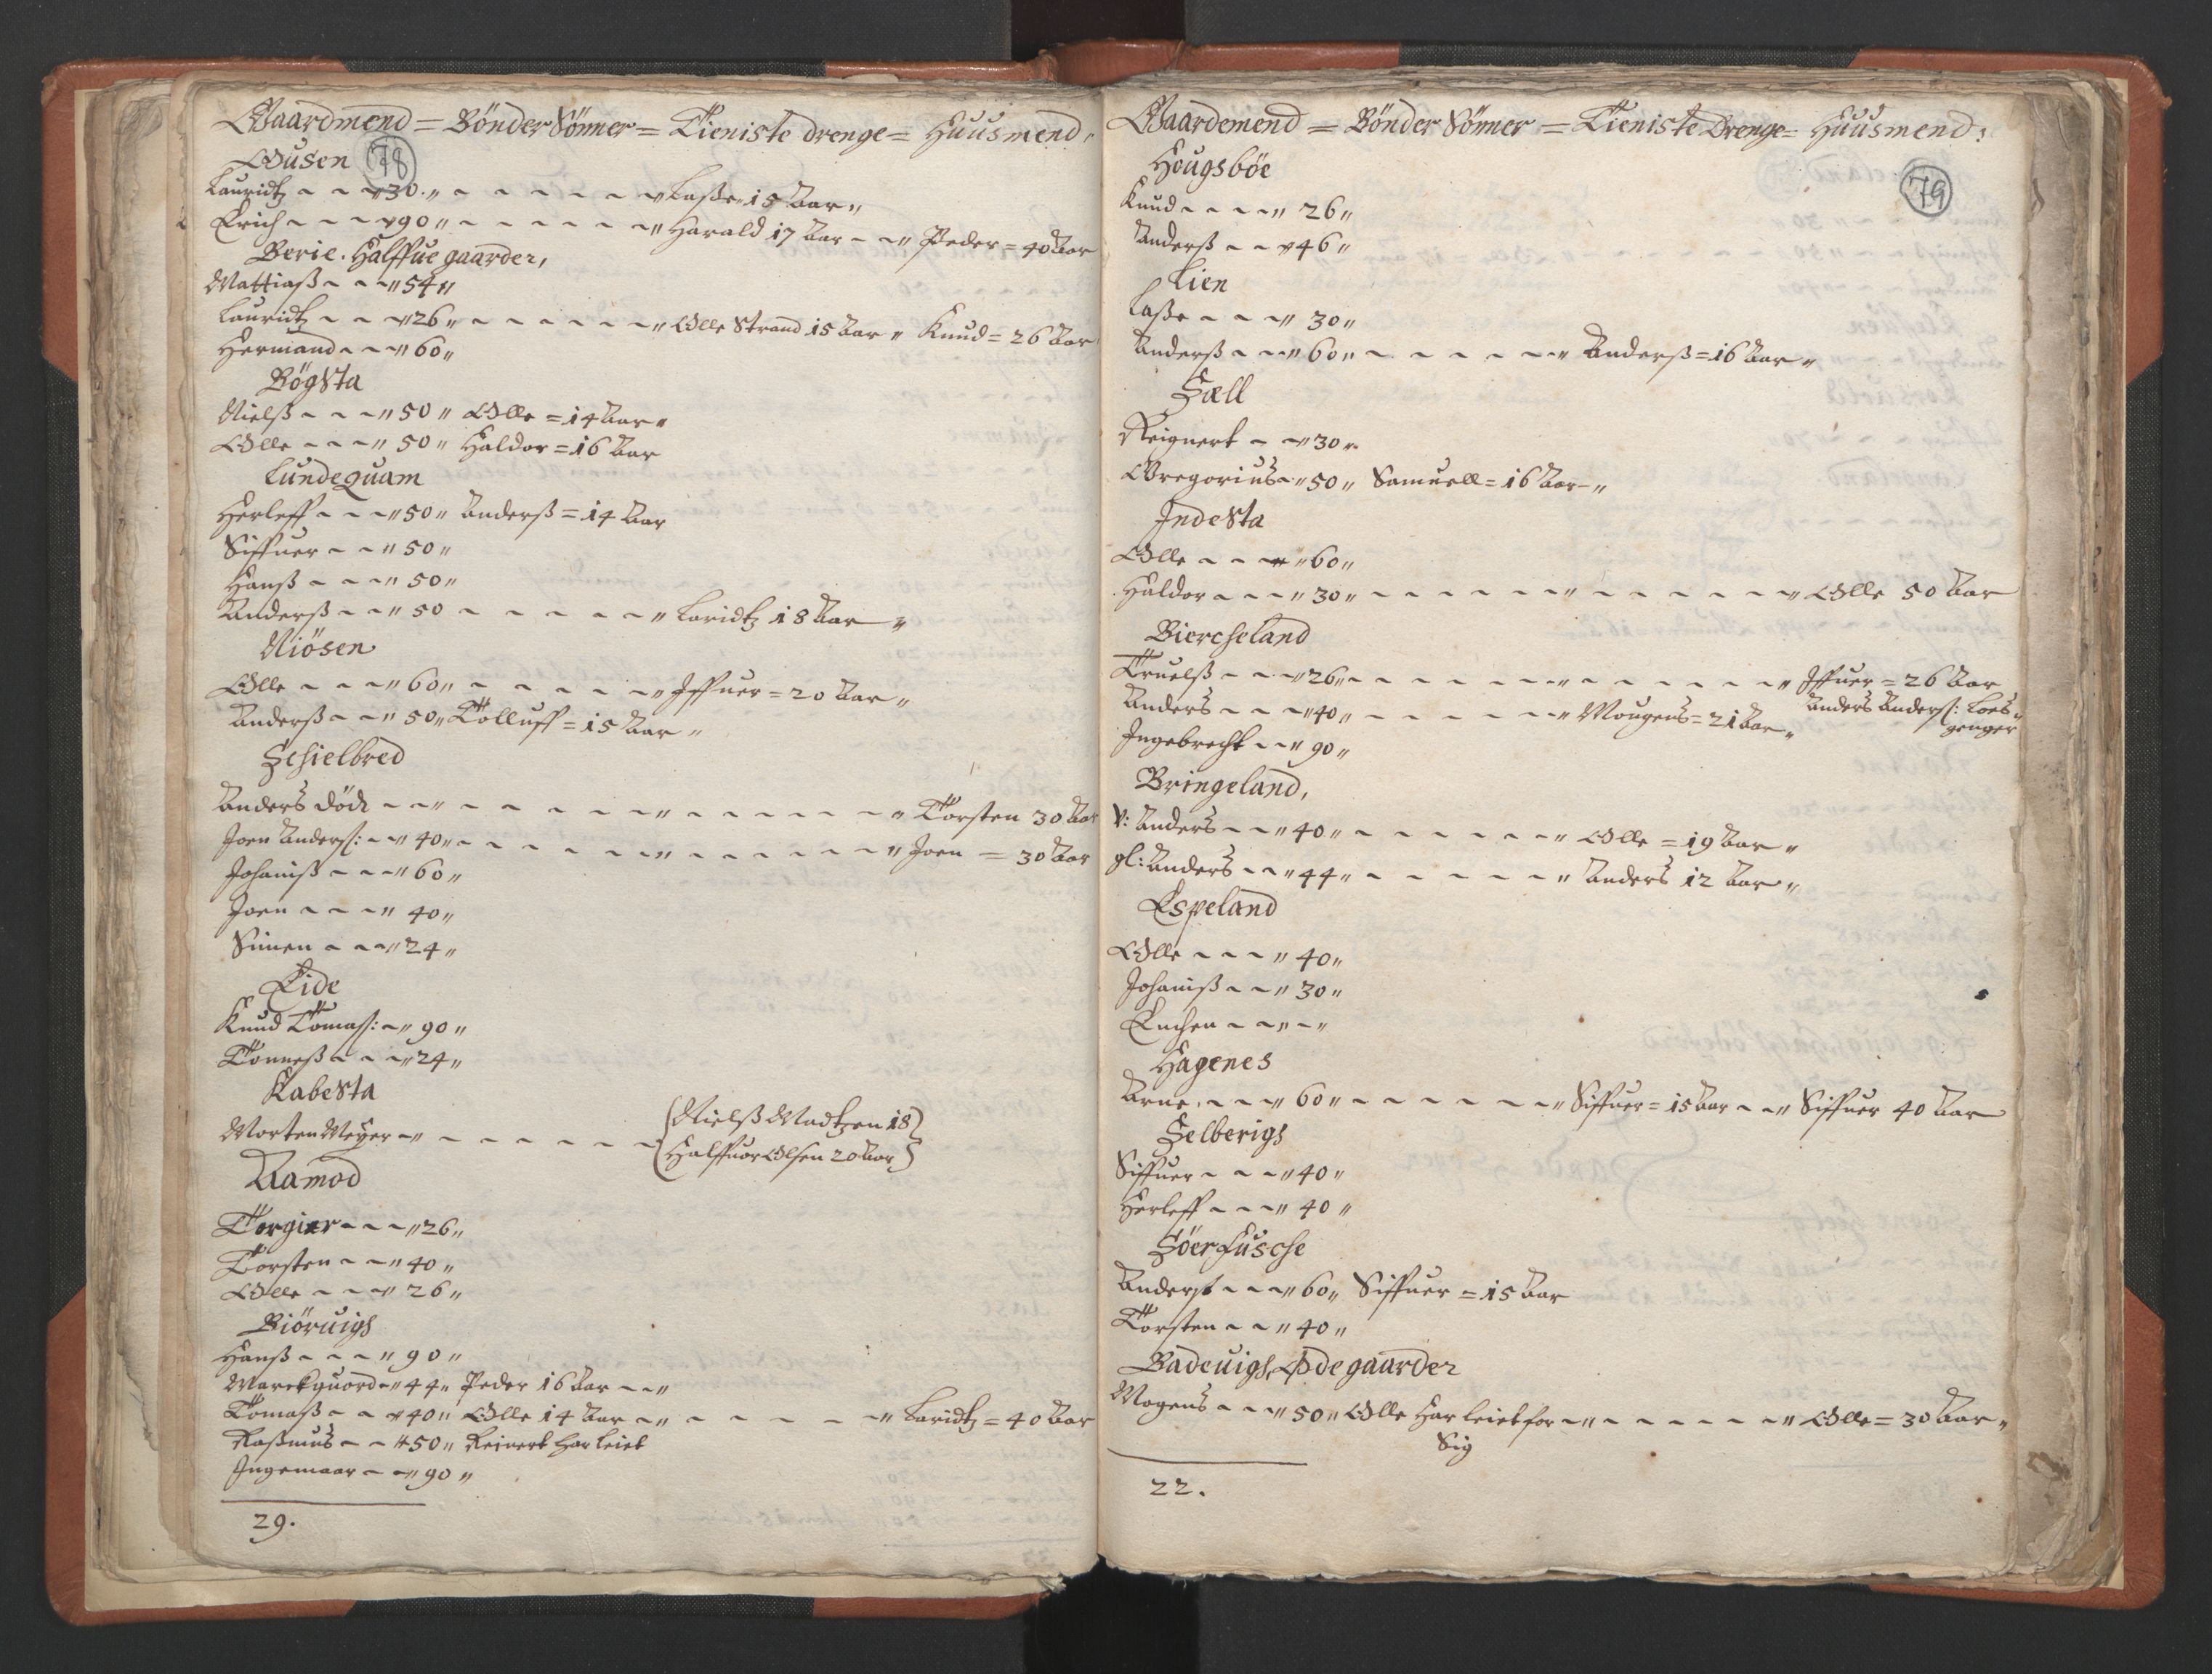 Gaardmend = Bönder Sönner = Tieniste drenge = Huusmend,
Gusen 78
Lauridtz - - - 30 „ - - - - - - „ Lasse 15 Aar „
Erich - - - 90 „ - - - - - - „ Harald 17 Aar - - „ Peder = 40 Aar
Berie. Halffue gaarder,
Mattiaß - - - „ 54 „
Lauridtz - - - 26 „ - - - - - - „ Olle Strand 15 Aar „ Knud = 26 Aar
Hermand - - - 60 „
Bögsta
Nielß - - - „ 50 „ Olle = 14 Aar „
Olle - - - „ 50 „ Haldor = 16 Aar
Lundequam
Herleff - - - „ 50 „ Anderß = 14 Aar
Siffuer - - „ 50 „
Hanß - - - „ 50 „
Anderß - - „ 50 - - - - - - „ Laridtz 18 Aar „
Niösen
Olle - - - „ 60 „ - - - - - „ Iffuer = 20 Aar „
Anderß - - „ 50 „ Tolluff = 15 Aar „
Schielbred
Anders död - - „ - - - - - „ - - - - - „ Torsten 30 Aar
Joen Anderß: - „ 40 „ - - - - - - „ - - - - - „ Joen = 30 Aar
Johaniß - - - „ 60 „
Joen - - - „ 40 „
Simen - - - „ 24 „
Eide
Knud Tomaß: - „ 90 „
Tönneß - - - „ 24 „
Kabesta
Morten Meyer - „ - - - - - - (Nielß Madtzen 18)
(Halffuor Olsen 20 Aar)
Aamod
Torgier - - - „ 26 „
Torsten - - „ 40 „
Olle - - - „ 26 „
Biöruigh
Hanß - - - „ 90 „
Marckquord - „ 44 „ Peder 16 Aar - - „
Tomaß - - 40 „ Olle 14 Aar - „ - - - - - „ Laridtz = 40 Aar
Raßmus - - „ 50 „ Reinert har leiet
Ingemaar - - „ 90 „
29.
Gaardemend = Bönder Sönner = Tieniste Drenge = Huusmend:
Hougsböe 79
Knud - - - - „ 26 „
Anderß - - „ 46 „
Lien
Laße - - - „ 30 „
Anderß - - - „ 60 „ - - - - - - „ Anderß = 16 Aar „
Sæll
Reignert - - „ 30 „
Gregorius - „ 50 „ Samuell = 16 Aar - „
Indesta
Olle - - - „ 60 „
Haldor - - - „ 30 „ - - - - - - „ - - - - - - „ Olle 50 Aar
Biercheland
Truelß - - - „ 26 „ - - - - - - „ - - - - - - „ Iffuer = 26 Aar
Anders - - - „ 40 „ - - - - - - „ Mougens = 21 Aar „ Anders Anderß: Loes-
genger
Ingebrecht - - „ 90 „
Bringeland,
V: Anders - - „ 40 „ - - - - - - „ Olle = 19 Aar „
gl: Anders - - „ 44 „ - - - - - - „ Anders 12 Aar „
Espeland
Olle - - - „ 40 „
Johaniß - - „ 30 „
Enchen - - „ - „
Hagenes
Arne - - - „ 60 „ - - - - - - „ Siffuer = 15 Aar - - „ Siffuer 40 Aar
Selberigh
Siffuer - - - „ 40 „
Herleff - - - „ 40 „
Söerfusche
Anderß - - - „ 60 „ Siffuer = 15 Aar
Torsten - - „ 40 „
Badeuigh, Ødegaarder
Mogens - - - „ 50 „ Olle Har leiet for - „ - - - - - - „ Olle = 30 Aar „
Sig
22.